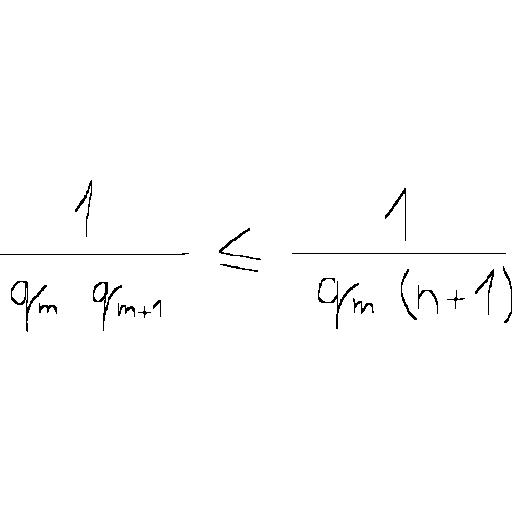 \frac{1}{q_m q_{m+1}} \leq \frac{1}{q_m (n+1)}